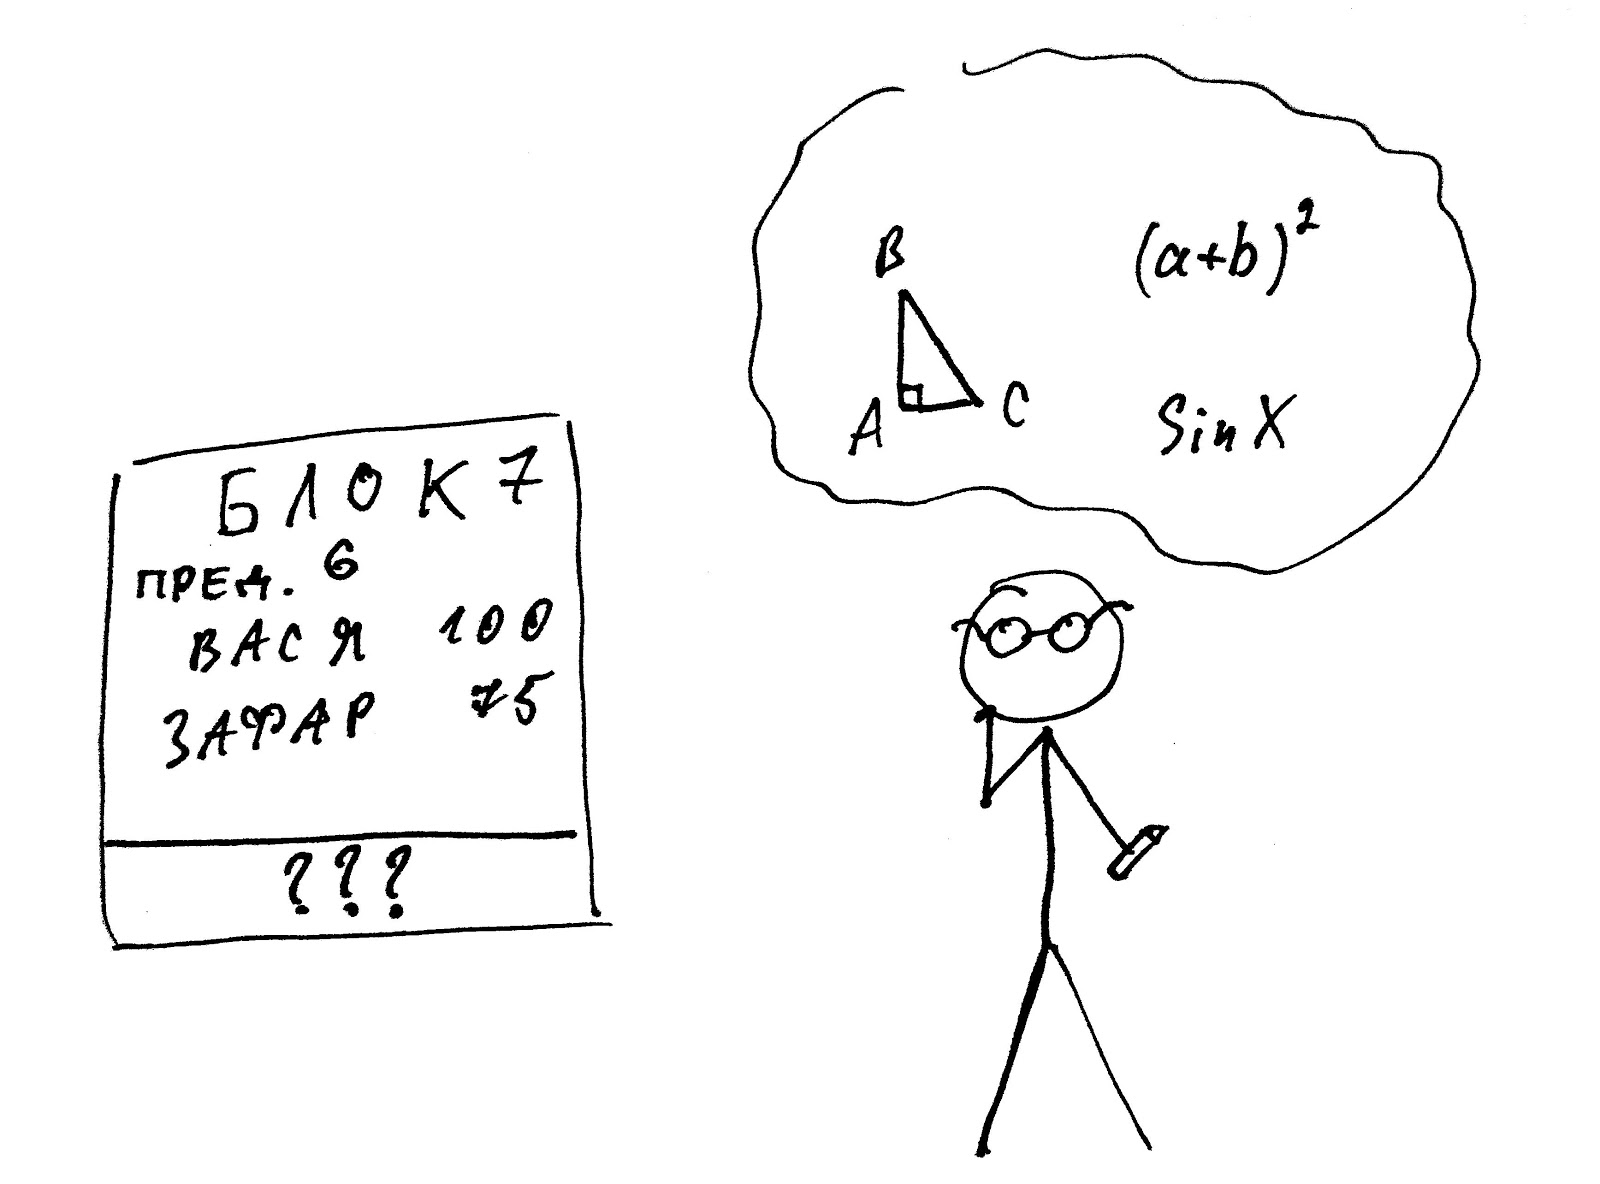 БЛОК 7
ПРЕД. 6
ВАСЯ 100
ЗАФАР 75
???
B
A
C
(a+b)²
Sin X